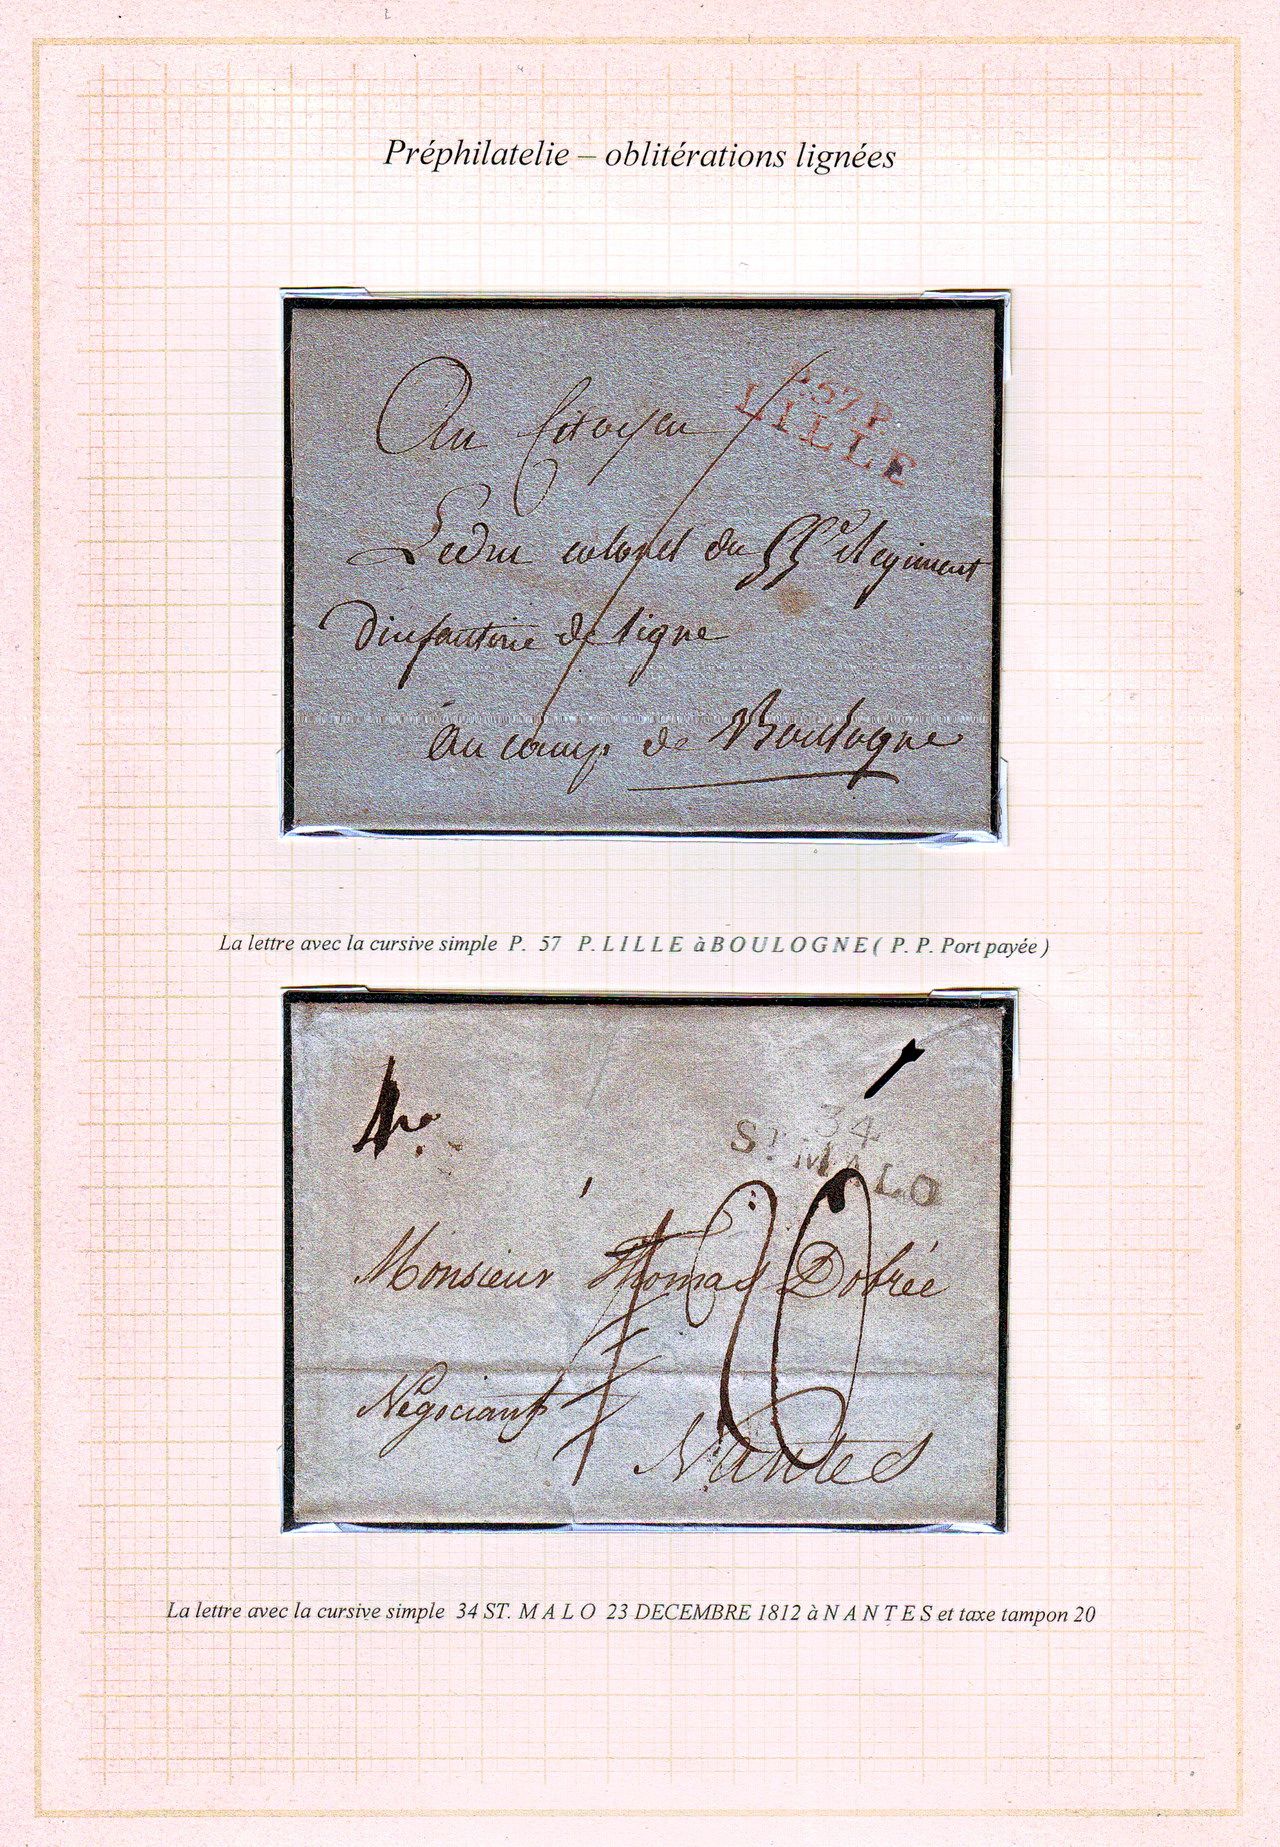 Préphilatelie – oblitérations lignées
P.57P
LILLE
Au Citoyen
Ledru colonel du 55e Regiment
D'infanterie de ligne
Au camp de Boulogne
La lettre avec la cursive simple P. 57 P. LILLE à BOULOGNE ( P. P. Port payée )
34
ST. MALO
20
Monsieur Thomas Dobrée
Négociant
Nantes
La lettre avec la cursive simple 34 ST. MALO 23 DECEMBRE 1812 à NANTES et taxe tampon 20